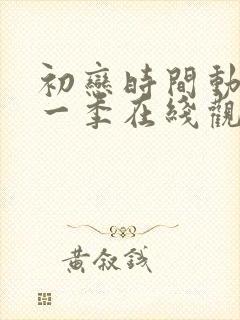 初戀時間動
一季在綫觀
黃叙錢